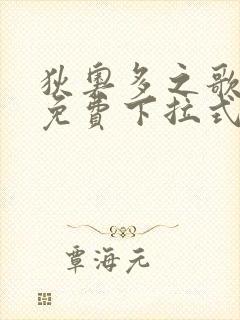 狄奧多之歌
免費下拉式
覃海元